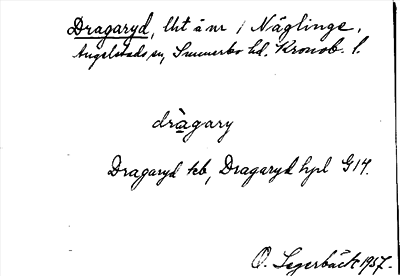 Dragaryd, lht å nr 1 Näglinge,
Angelstads sn, Sunnerbo hd. Kronob. l.
dràgary
Dragaryd teb, Dragaryd hpl G14.
O. Segerbäck 1957.